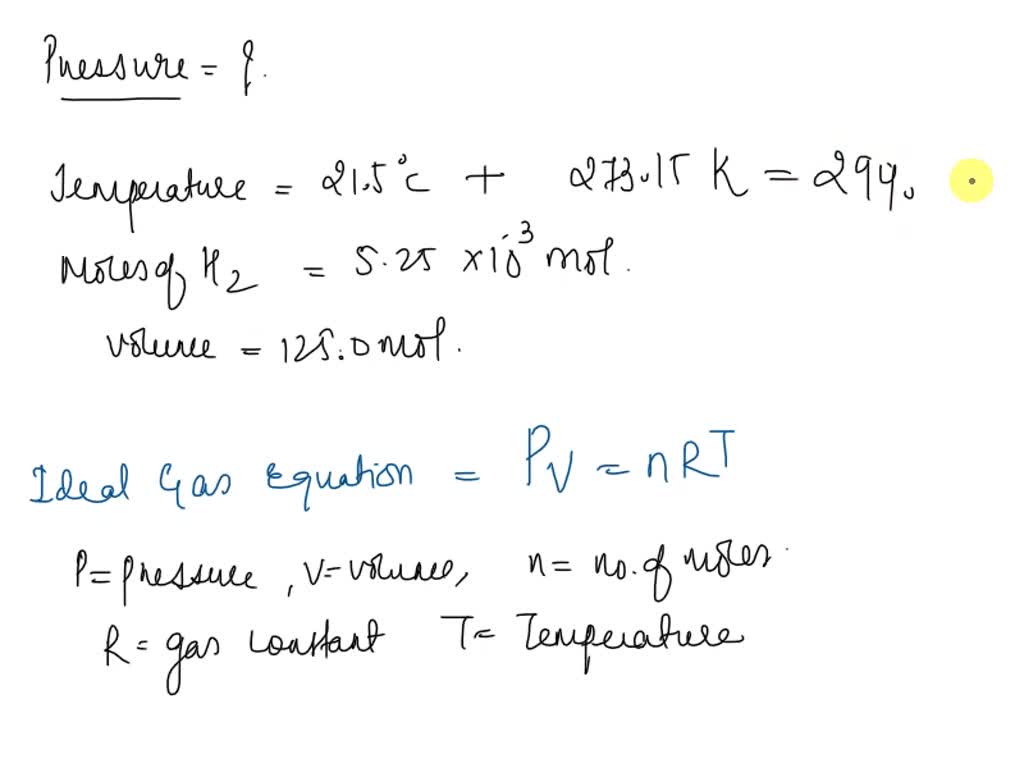 Pressure = ?
Temperature = 21.5°C + 273.15 K = 294.
Moles of H2 = 5.25 x10^-3 mol.
Volume = 125.0 mol.
Ideal Gas Equation = PV = nRT
P = pressure, V = volume, n = no. of moles.
R = gas constant T = Temperature